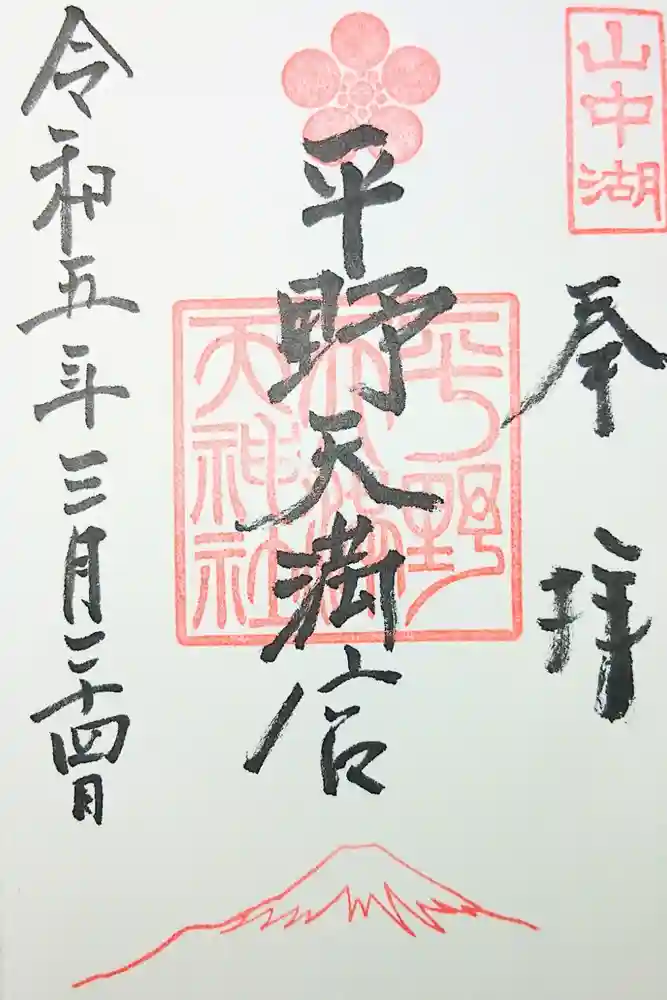 山中湖
奉拝
平野天満宮
平野天満天神社
令和五年三月二十四日